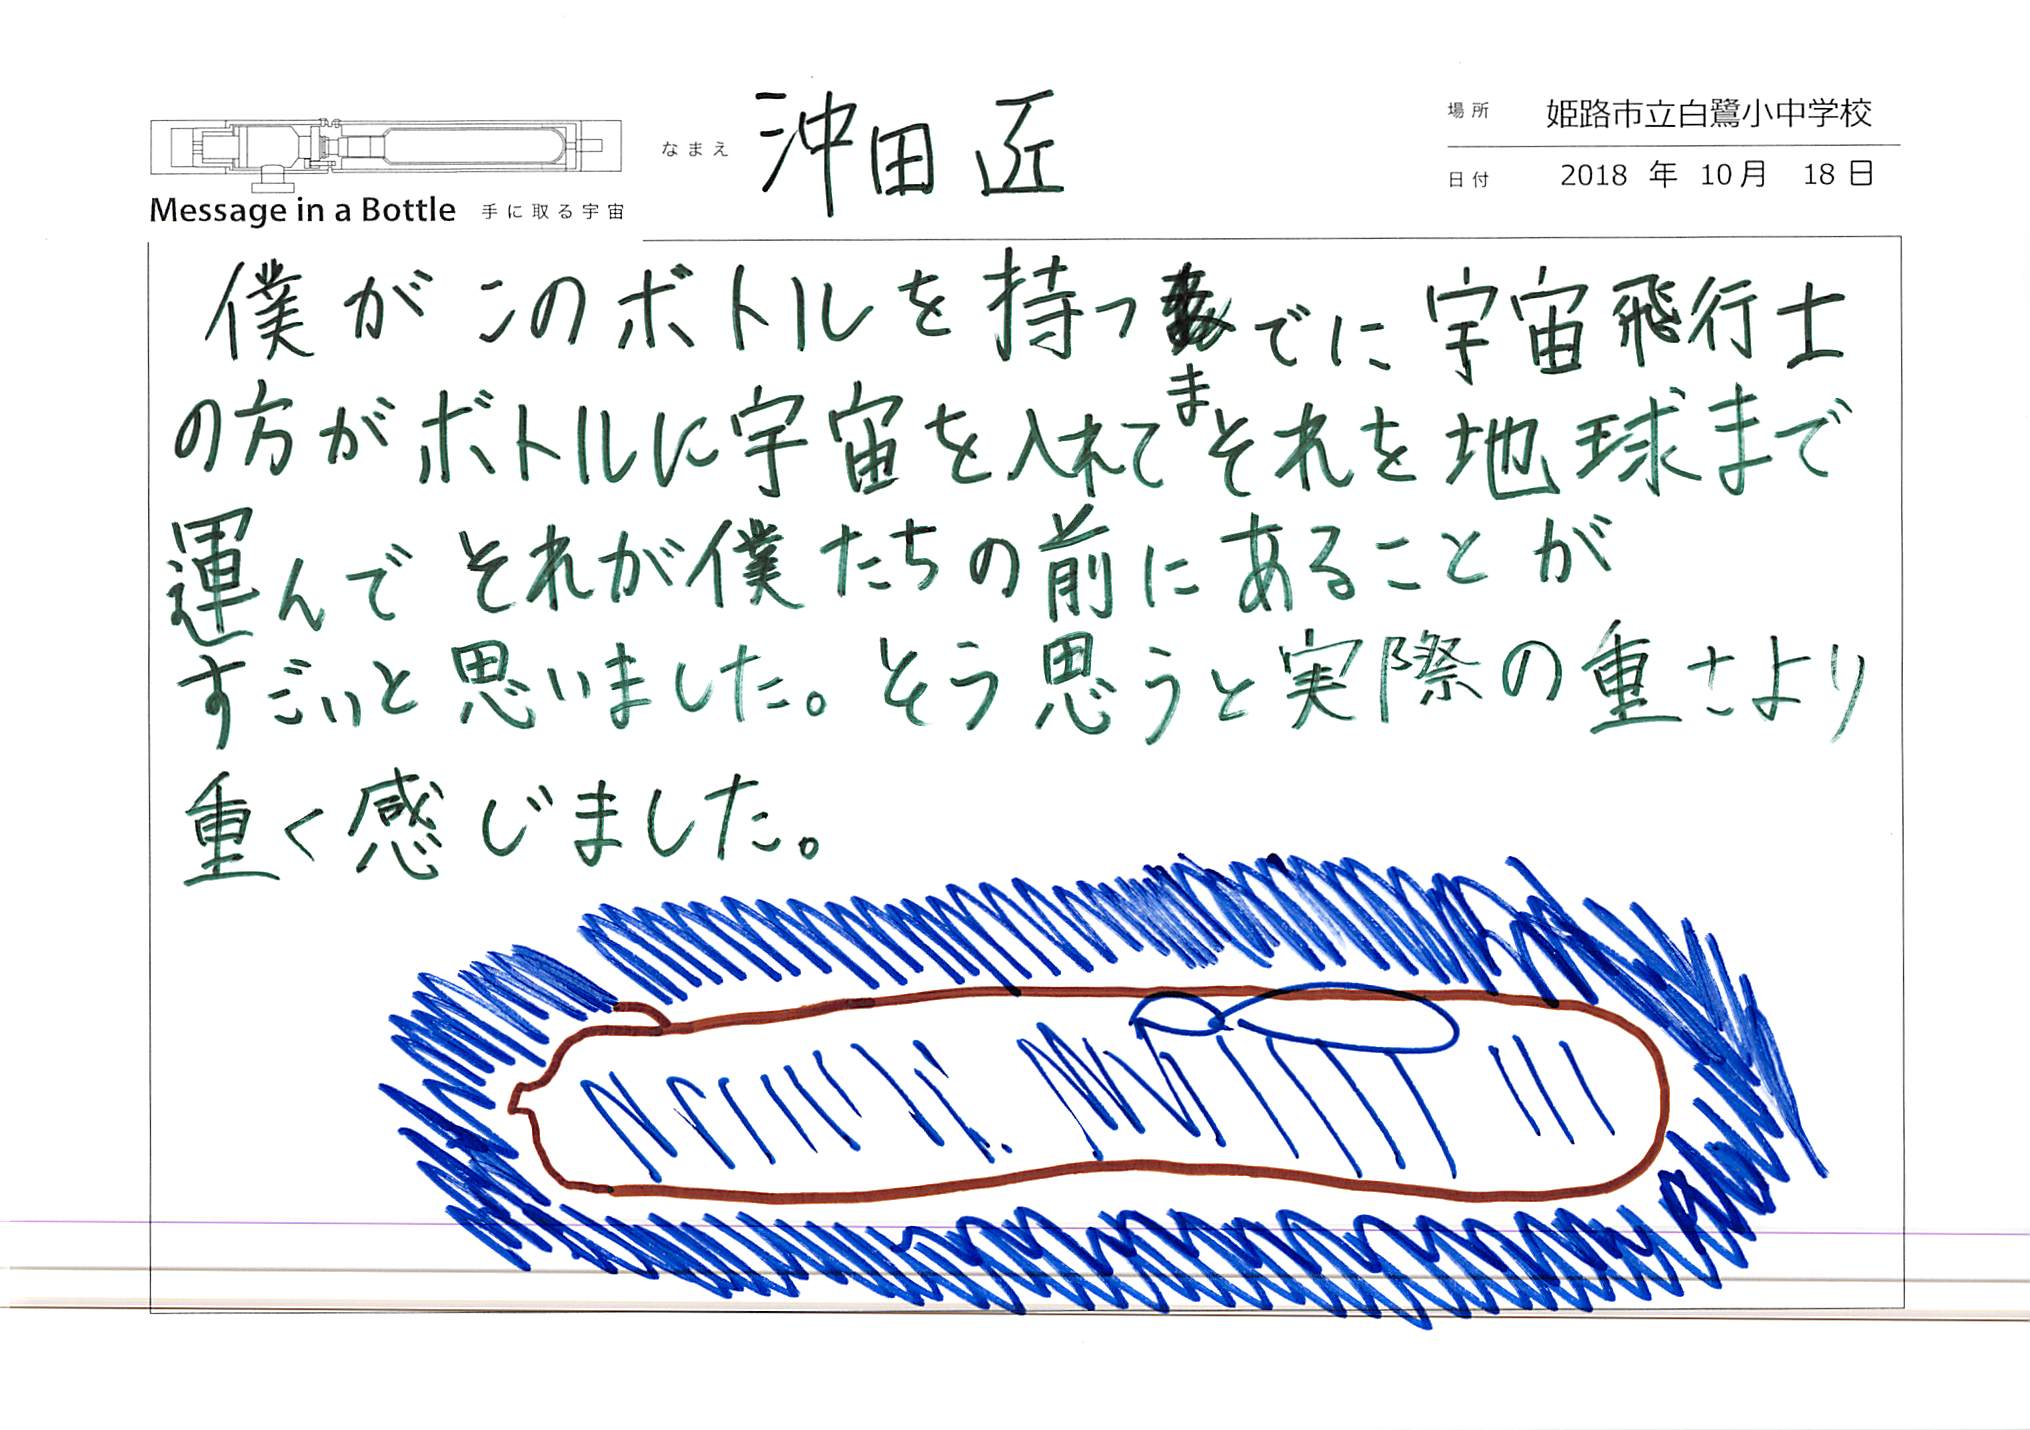 なまえ 沖田 匠
場所 姫路市立白鷺小中学校
日付 2018 年 10 月 18 日
Message in a Bottle 手に取る宇宙
僕がこのボトルを持つまでに宇宙飛行士
の方がボトルに宇宙を入れてそれを地球まで
運んでそれが僕たちの前にあることが
すごいと思いました。そう思うと実際の重さより
重く感じました。